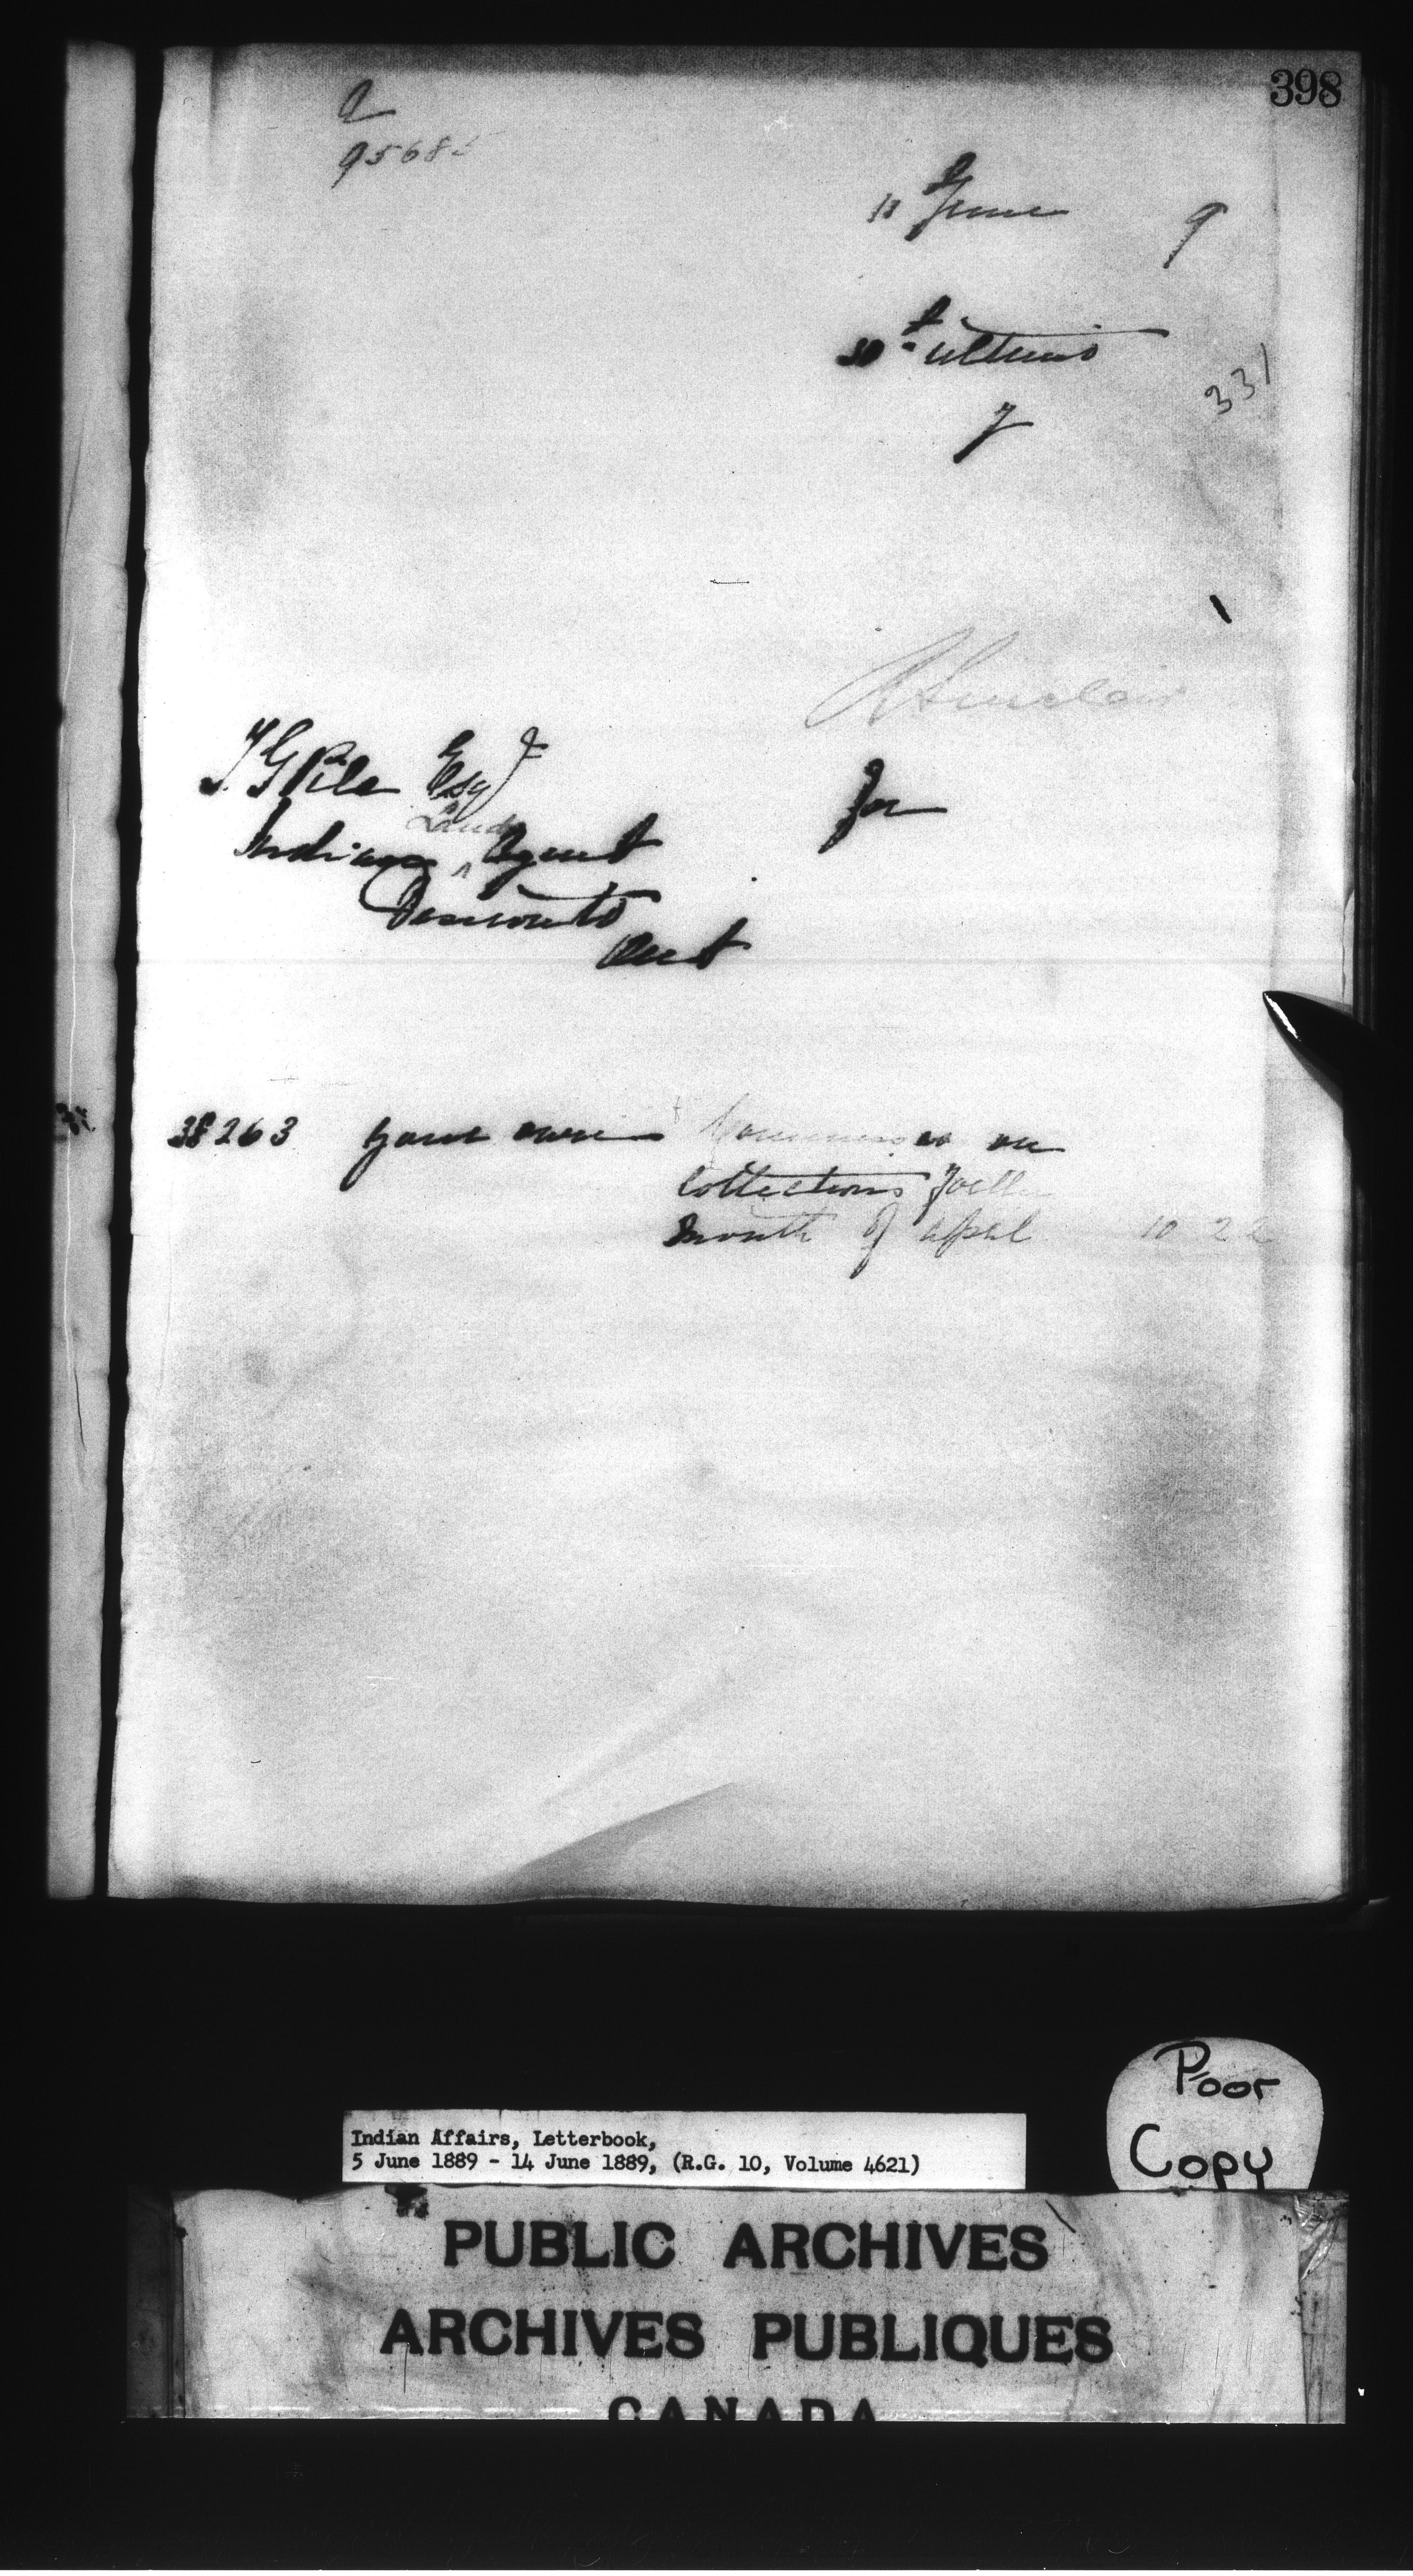 398
95685
11 June 9
30th ultimo
331
7
R Sinclair
for
T. G Pile Esqr
Indian Land Agent
Deseronto
Ont
38263 your own Commission on
Collections for the
month of April 10 22
Poor
Copy
Indian Affairs, Letterbook,
5 June 1889 - 14 June 1889, (R.G. 10, Volume 4621)
PUBLIC ARCHIVES
ARCHIVES PUBLIQUES
CANADA